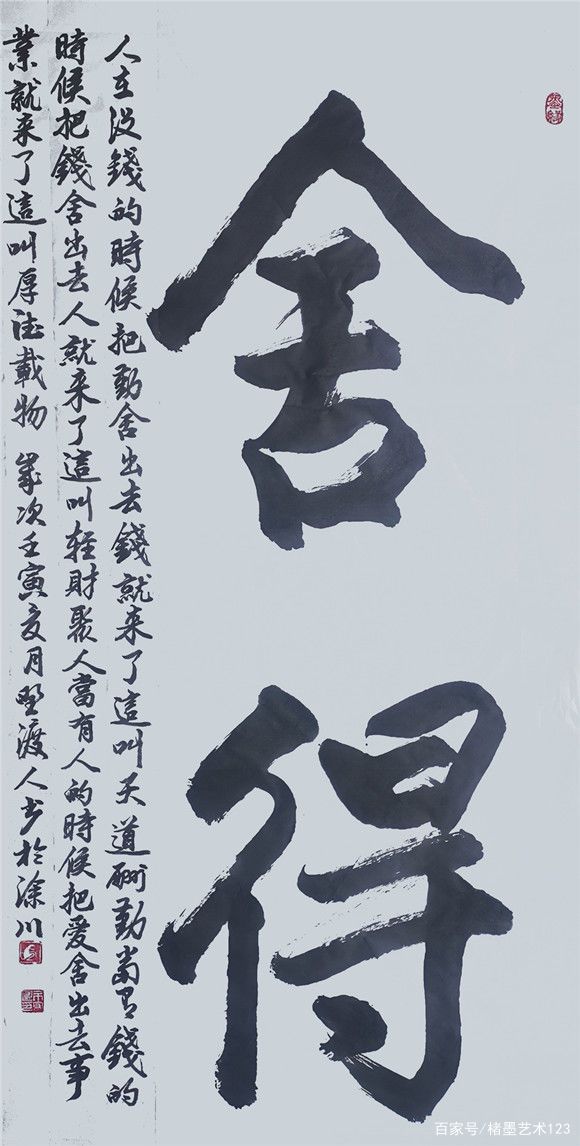 舍得
人在没錢的時候把勤舍出去錢就来了這叫天道酬勤當有錢的
時候把錢舍出去人就来了這叫轻財聚人當有人的時候把爱舍出去事
業就来了這叫厚德載物 歲次壬寅亥月野渡人书於涂川
百家号/楮墨艺术123